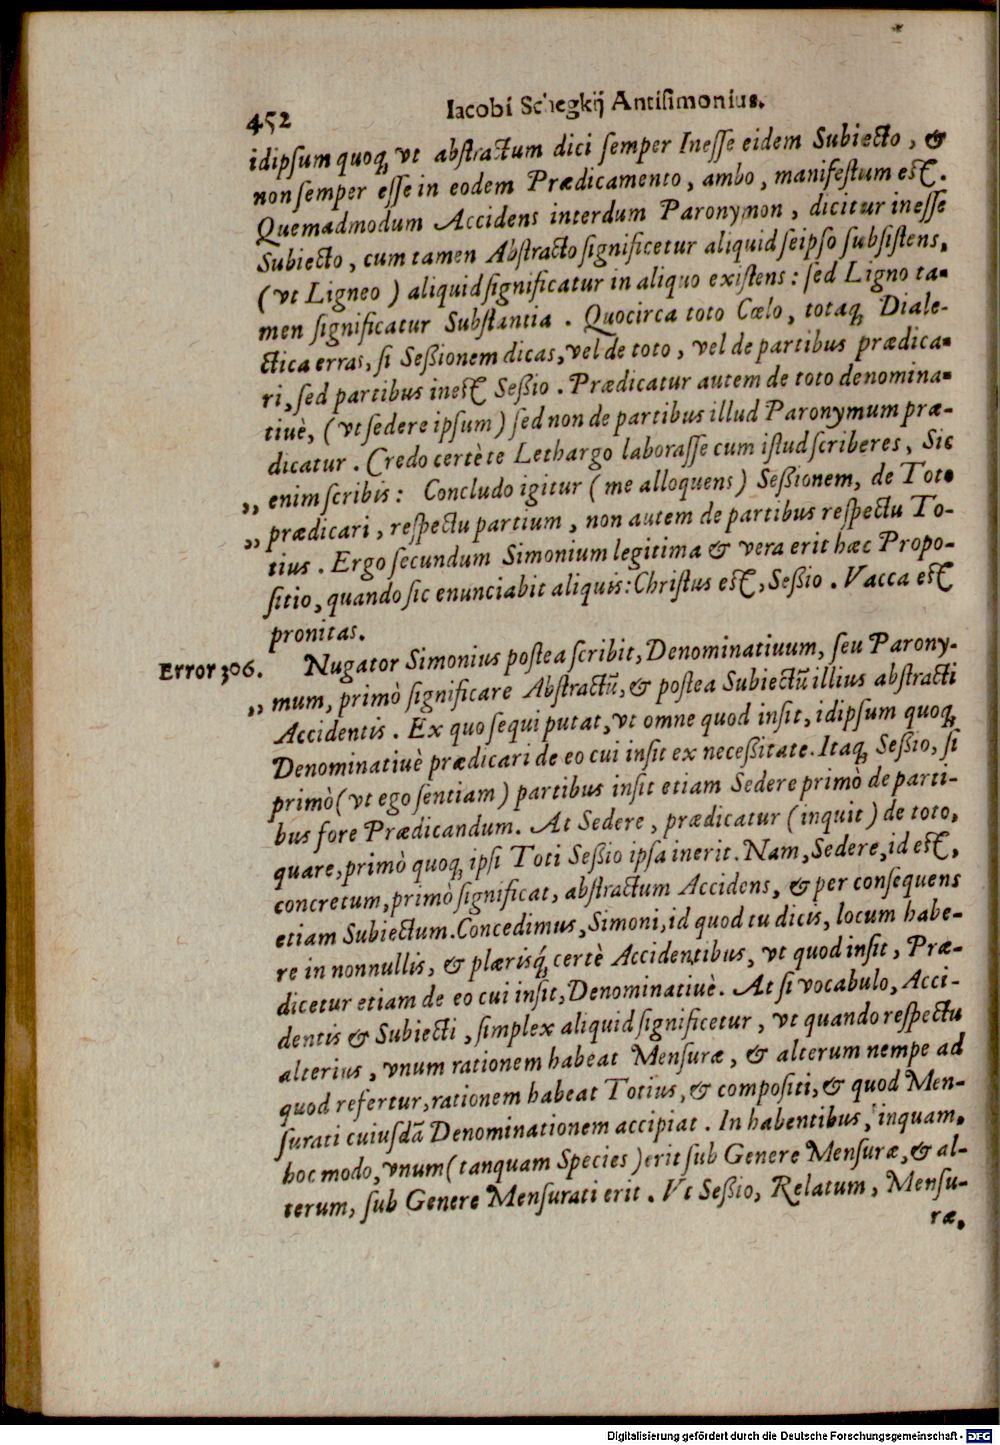 452
Iacobi Schegkij Antisimonius.
idipsum quoq́; vt abstractum dici semper Inesse eidem Subiecto, &
non semper esse in eodem Prædicamento, ambo, manifestum est.
Quemadmodum Accidens interdum Paronymon, dicitur inesse
Subiecto, cum tamen Abstracto significetur aliquid seipso subsistens,
(vt Ligneo) aliquid significatur in aliquo existens: sed Ligno ta-
men significatur Substantia. Quocirca toto Cœlo, totaq́; Diale-
ctica erras, si Seßionem dicas, vel de toto, vel de partibus prædica-
ri, sed partibus inest Seßio. Prædicatur autem de toto denomina-
tiuè, (vt sedere ipsum) sed non de partibus illud Paronymum præ-
dicatur. Credo certè te Lethargo laborasse cum istud scriberes, Sic
,, enim scribis: Concludo igitur (me alloquens) Seßionem, de Toto
,, prædicari, respectu partium, non autem de partibus respectu To-
tius. Ergo secundum Simonium legitima & vera erit hæc Propo-
sitio, quando sic enunciabit aliquis: Christus est, Seßio. Vacca est
pronitas.
Error 306. Nugator Simonius postea scribit, Denominatiuum, seu Parony-
,, mum, primò significare Abstractũ, & postea Subiectũ illius abstracti
Accidentis. Ex quo sequi putat, vt omne quod insit, idipsum quoq́;
Denominatiuè prædicari de eo cui insit ex neceßitate. Itaq́; Seßio, si
primò (vt ego sentiam) partibus insit etiam Sedere primò de parti-
bus fore Prædicandum. At Sedere, prædicatur (inquit) de toto,
quare, primò quoq́; ipsi Toti Seßio ipsa inerit. Nam, Sedere, id est,
concretum, primò significat, abstractum Accidens, & per consequens
etiam Subiectum. Concedimus, Simoni, id quod tu dicis, locum habe-
re in nonnullis, & plærisq́; certè Accidentibus, vt quod insit, Præ-
dicetur etiam de eo cui insit, Denominatiuè. At si vocabulo, Acci-
dentis & Subiecti, simplex aliquid significetur, vt quando respectu
alterius, vnum rationem habeat Mensuræ, & alterum nempe ad
quod refertur, rationem habeat Totius, & compositi, & quod Men-
surati cuiusdã Denominationem accipiat. In habentibus, inquam,
hoc modo, vnum (tanquam Species) erit sub Genere Mensuræ, & al-
terum, sub Genere Mensurati erit. Vt Seßio, Relatum, Mensu-
ræ,
Digitalisierung gefördert durch die Deutsche Forschungsgemeinschaft - DFG